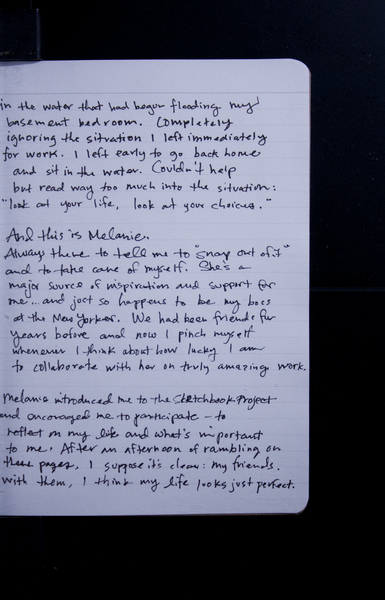 in the water that had begun flooding my
basement bedroom. Completely
ignoring the situation I left immediately
for work. I left early to go back home
and sit in the water. Couldn't help
but read way too much into the situation:
"look at your life, look at your choices."
And this is Melanie.
Always there to tell me to "snap out of it"
and to take care of myself. She's a
major source of inspiration and support for
me... and just so happens to be my boss
at the New Yorker. We had been friends for
years before and now I pinch myself
whenever I think about how lucky I am
to collaborate with her on truly amazing work.
Melanie introduced me to the Sketchbook Project
and encouraged me to participate - to
reflect on my life and what's important
to me. After an afternoon of rambling on
these pages, I suppose it's clear: my friends.
With them, I think my life looks just perfect.